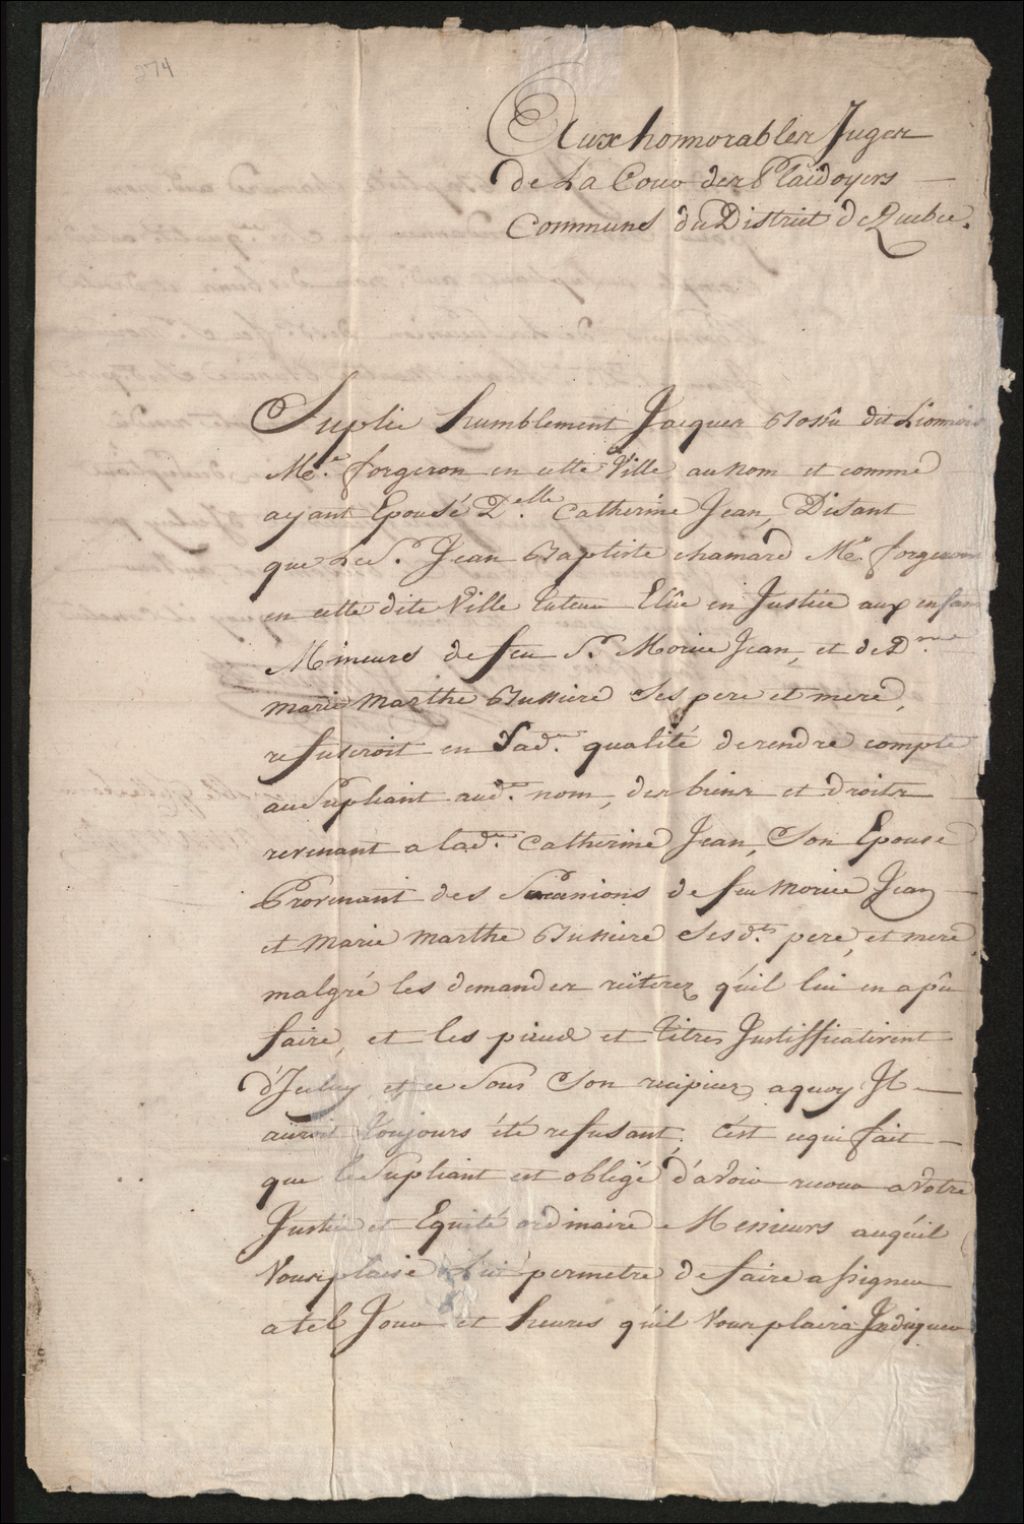 274
Aux honnorables Juges
de La Cour des Plaidoyers
Communs du District de Quebec.
Suplie humblement Jacques Bossû dit Lionnois
Me. forgeron en cette Ville, au nom et comme
ayant Epousé D.elle Catherine Jean, Disant
que Le S.r Jean Baptiste chamard Me. forgeron
en cette dite Ville tuteur Elûe en Justice aux enfans
Mineurs de feu S.r Morice Jean, et de D.me
marie marthe Bussiere Ses pere et mere,
refuseroit en Sad.te qualité de rendre compte
au Supliant aud.t nom, des biens et droits
revenant a lad.te Catherine Jean, Son Epouse
Provenant des Sucanions de feu Morice Jean
et Marie marthe Bussiere Sesd.ts pere, et mere
malgré les demandes reïterez qu'il lui en a pû
faire, et les pieces et titres Justifficatives
d'Iceluy, et ce Sous Son recipicez, a quoy Il
auroit toujours été refusant, c'ést ce qui fait
que le Supliant est obligé d'avoir recour a votre
Justice et Equité ordinaire Messieurs a ce qu'il
Vous plaise Lui permetre de faire assigner
a tel Jour et heures qu'il Vous plaira Indiquer